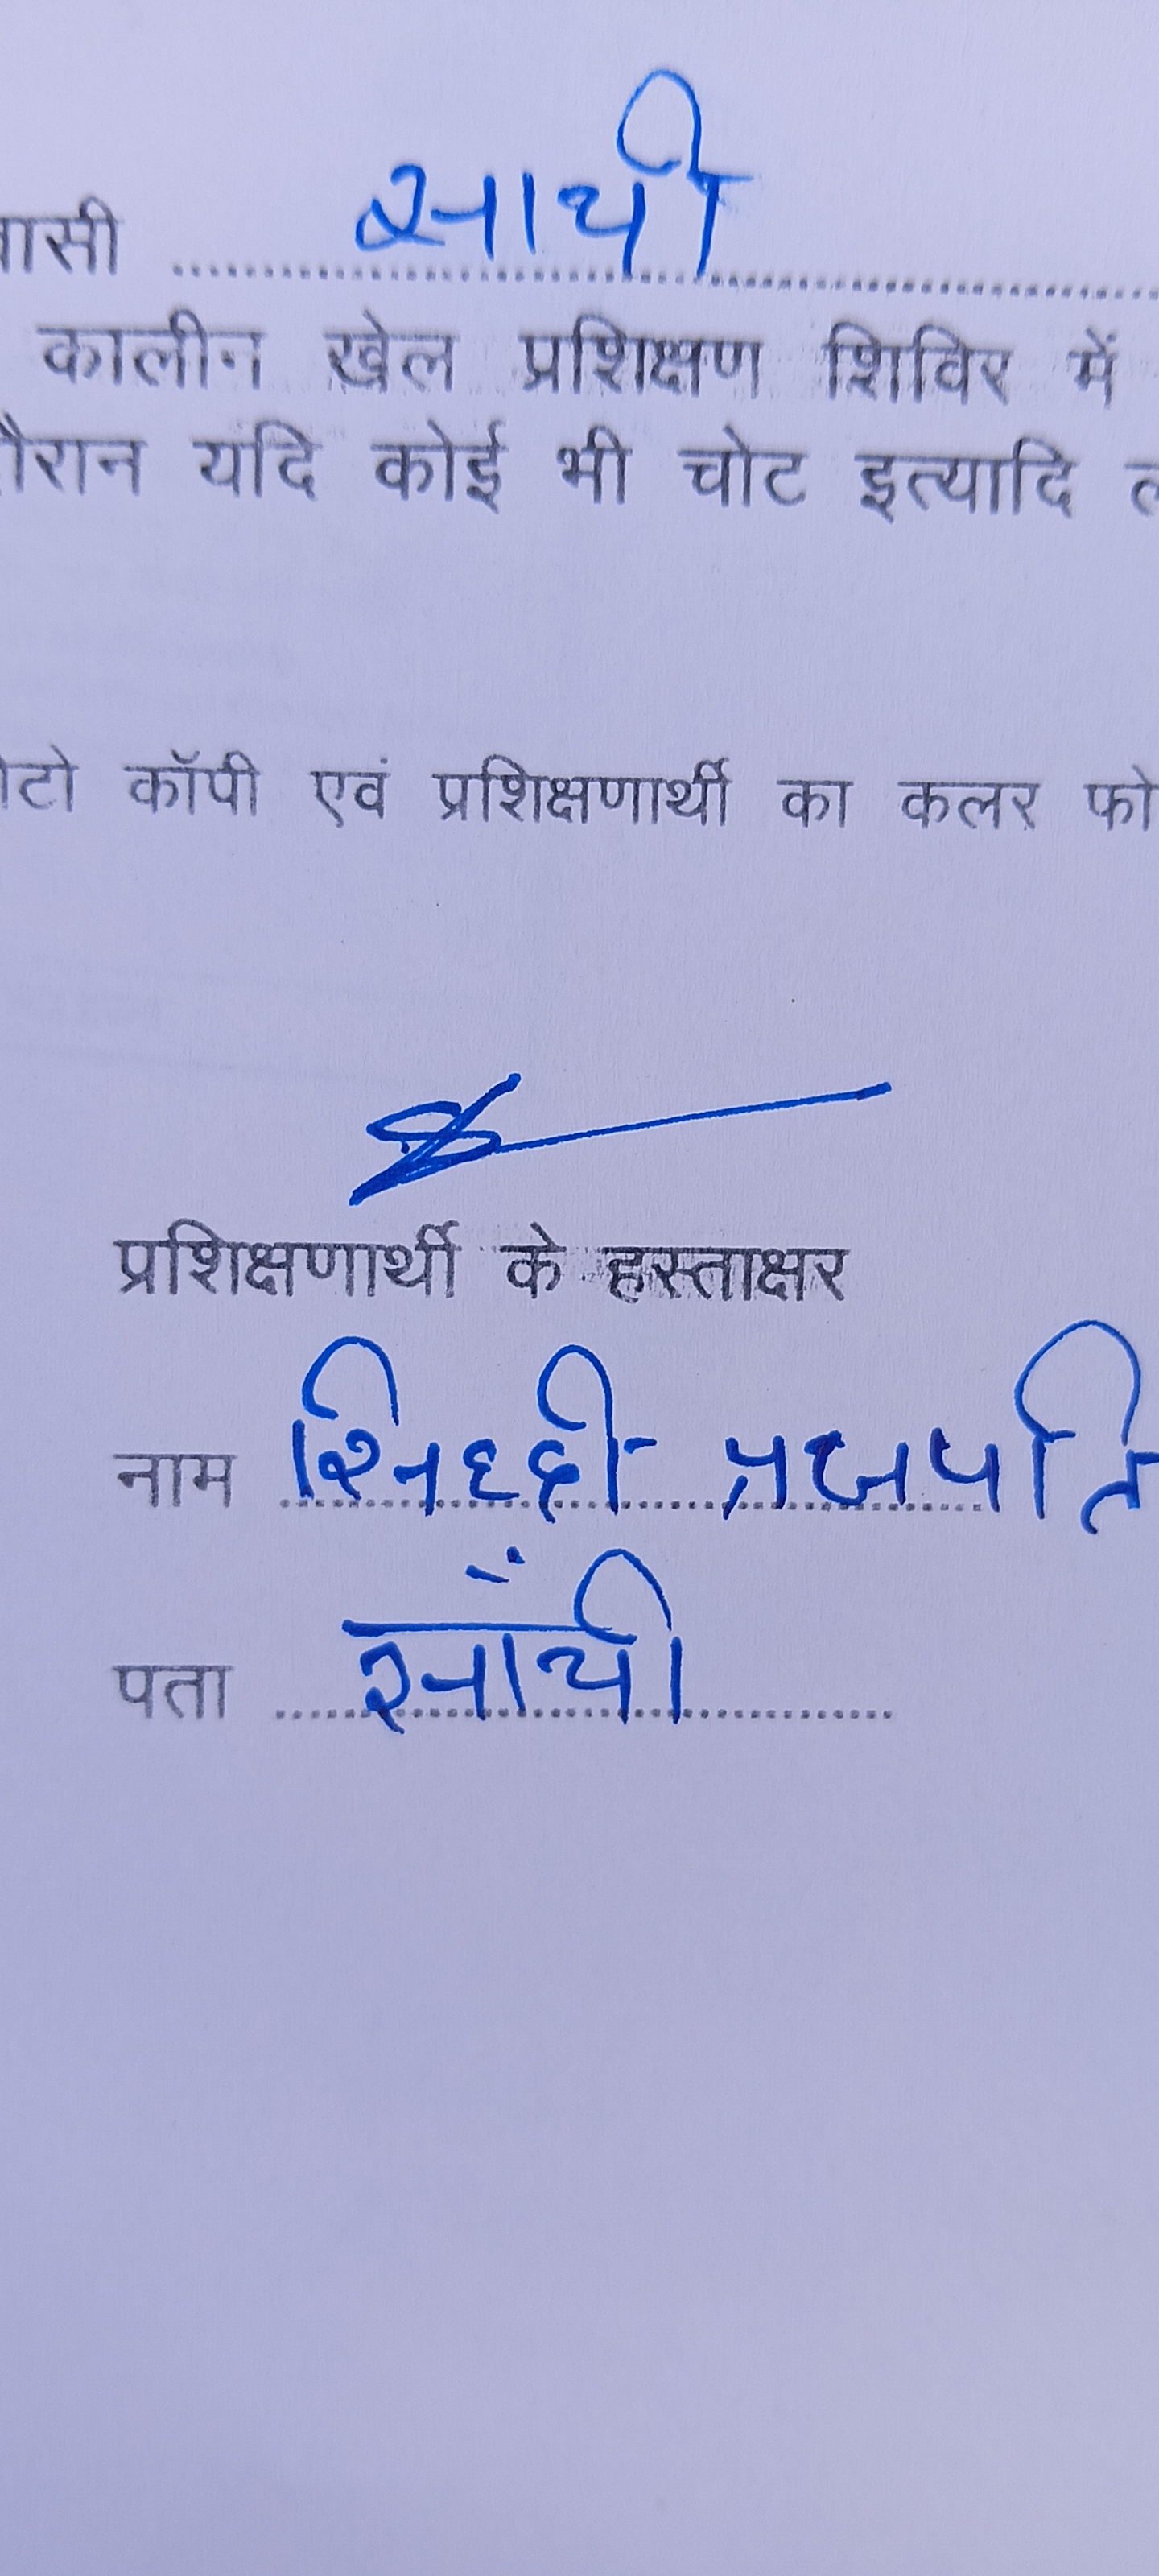 ासी साची
कालीन खेल प्रशिक्षण शिविर में
ौरान यदि कोई भी चोट इत्यादि ल
ोटो कॉपी एवं प्रशिक्षणार्थी का कलर फो
प्रशिक्षणार्थी के हस्ताक्षर
नाम सिध्दी प्रजपति
पता सांची